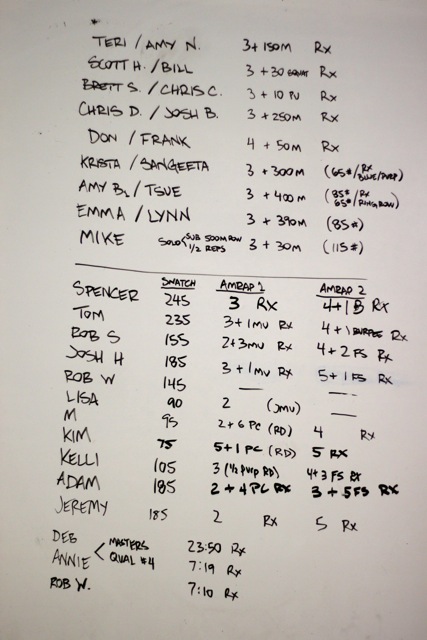 TERI / AMY N. 3 + 150M Rx
SCOTT H. / BILL 3 + 30 SQUAT Rx
BRETT S. / CHRIS C. 3 + 10 PU Rx
CHRIS D. / JOSH B. 3 + 250M Rx
DON / FRANK 4 + 50M Rx
KRISTA / SANGEETA 3 + 300M (65#/RX BLUE/PURP)
AMY B. / TSUE 3 + 400M (85#/RX 65#/RING ROW)
EMMA / LYNN 3 + 390M (85#)
MIKE SOLO < SUB 500M ROW 1/2 REPS 3 + 30M (115#)
SNATCH AMRAP 1 AMRAP 2
SPENCER 245 3 Rx 4+1 B Rx
TOM 235 3+1MU Rx 4+1 BURPEE Rx
ROB S 155 2+3MU Rx 4+2 FS Rx
JOSH H 185 3+1MU Rx 5+1 FS Rx
ROB W 145 — —
LISA 90 2 (JMU) —
M 95 2+6 PC (RD) 4 Rx
KIM 75 5+1 PC (RD) 5 RX
KELLI 105 3 (1/2 PURP RD) 4+3 FS Rx
ADAM 185 2+4 PC RX 3+5 FS RX
JEREMY 185 2 Rx 5 Rx
DEB 23:50 Rx
ANNIE < MASTERS QUAL #4 7:19 Rx
ROB W. 7:10 Rx